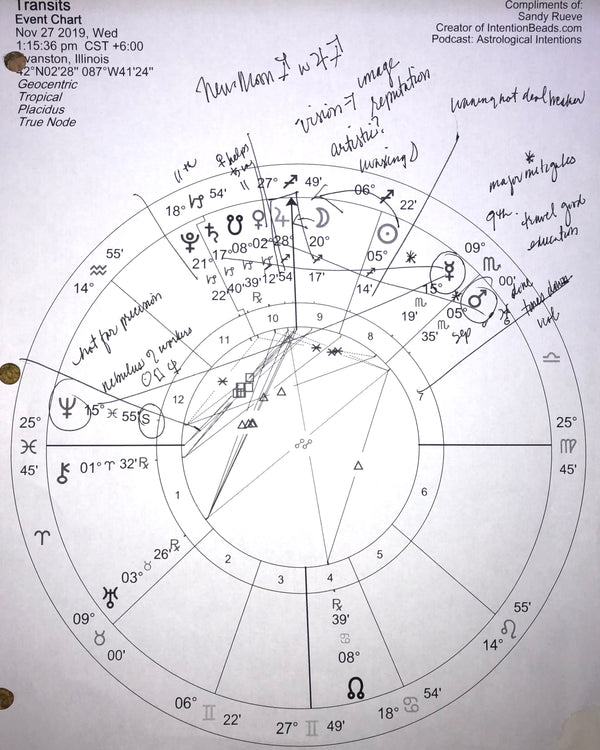 Transits
Event Chart
Nov 27 2019, Wed
1:15:36 pm CST +6:00
vanston, Illinois
42°N02'28" 087°W41'24"
Geocentric
Tropical
Placidus
True Node
Compliments of:
Sandy Rueve
Creator of IntentionBeads.com
Podcast: Astrological Intentions
New Moon ♐ w ♃ ♐
image
vision → reputation
artistic?
waxing ☽
waning not deal breaker
*
major mitigates
9th. travel good
education
11th
♀ helps
not for precision
nebulus ? workers
☉ □ ♆
18° ♑ 54'
27° ♐ 49'
06° ♐ 22'
09° ♏ 00'
55' ♒ 14°
♇ ♄ ☋ ♀ ♃ ☽ ☉
21° 17° 08° 02° 28° 20°
♑ ♑ ♑ ♑ ♐ ♐ ♐
22' 40' 39' 12' 54' 17' 14'
℞
☿ 15° ♏ 19'
♂ 05° ♏ 35'
sep
♎
11 10 9 8
12 7
♆ 15° ♓ 55' S
25° ♓ 45'
25° ♍ 45'
⚷ 01° ♈ 32' ℞
♈
1 6
2 3 4 5
♅ 03° ♉ 26' ℞
09° ♉ 00'
℞
39'
♋
08°
☊
55' ♌ 14°
06° ♊ 22'
27° ♊ 49'
18° ♋ 54'